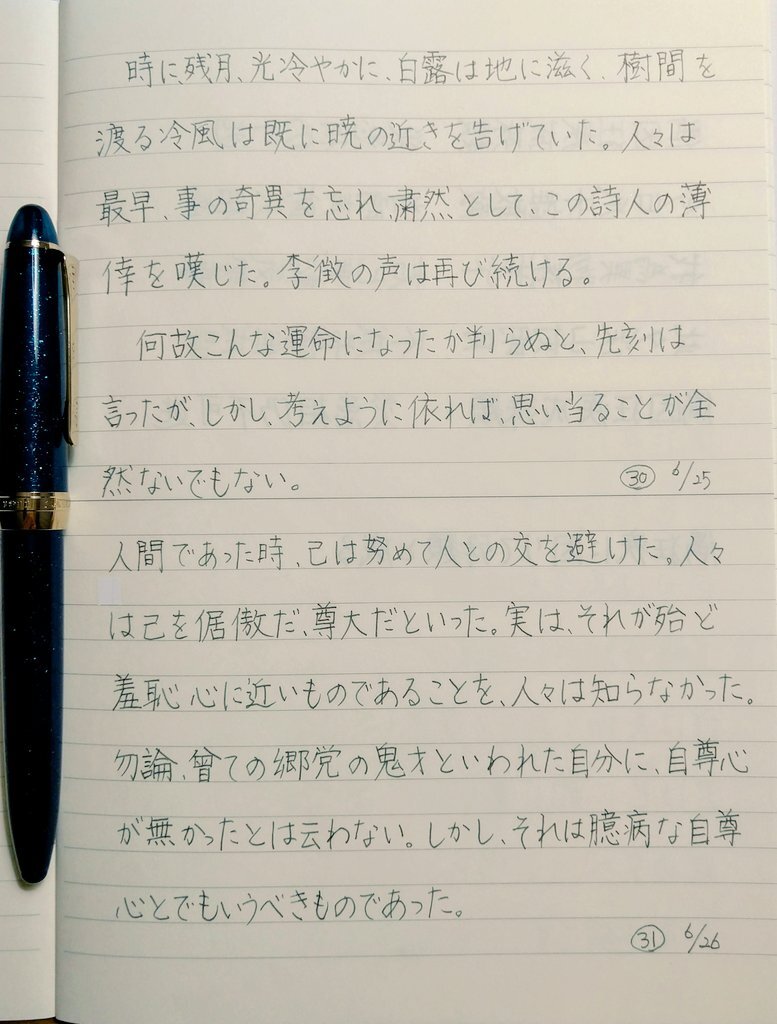 時に、残月、光冷やかに、白露は地に滋く、樹間を
渡る冷風は既に暁の近きを告げていた。人々は
最早、事の奇異を忘れ、粛然として、この詩人の薄
倖を嘆じた。李徴の声は再び続ける。
何故こんな運命になったか判らぬと、先刻は
言ったが、しかし、考えように依れば、思い当ることが全
然ないでもない。
㉚ 6/25
人間であった時、己は努めて人との交を避けた。人々
は己を倨傲だ、尊大だといった。実は、それが殆ど
羞恥心に近いものであることを、人々は知らなかった。
勿論、曾ての郷党の鬼才といわれた自分に、自尊心
が無かったとは云わない。しかし、それは臆病な自尊
心とでもいうべきものであった。
㉛ 6/26